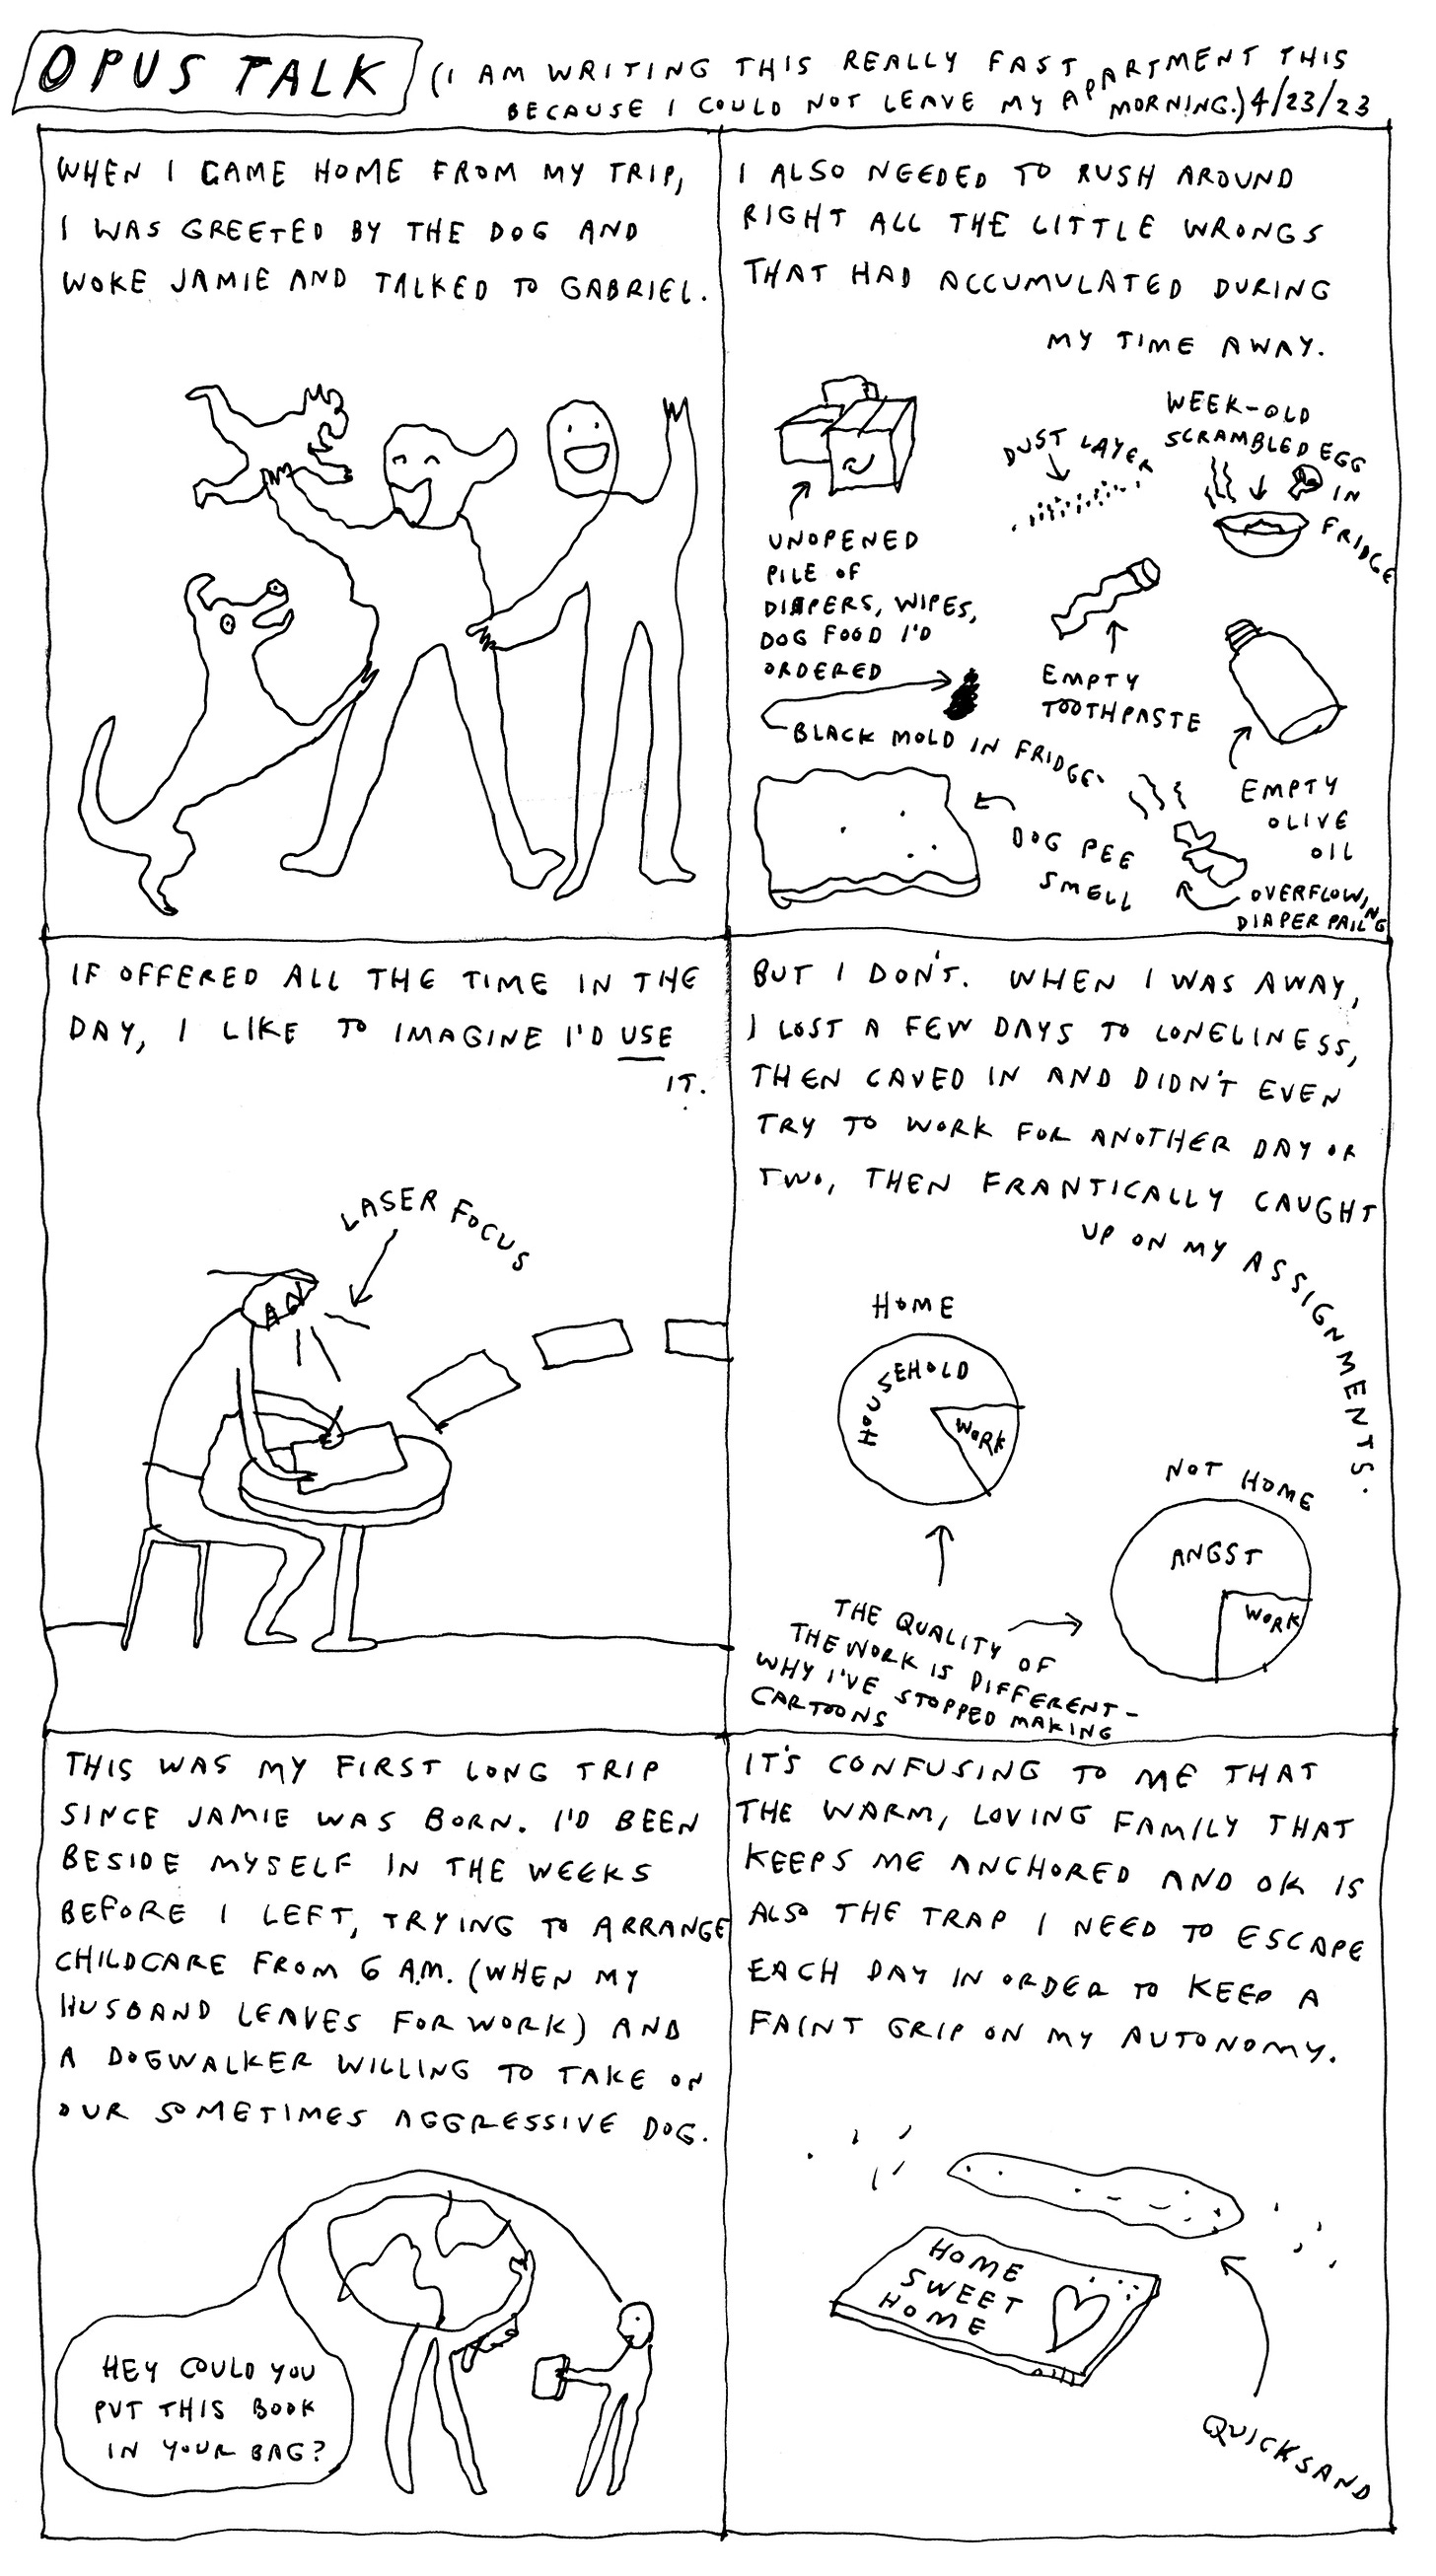 OPUS TALK
(I AM WRITING THIS REALLY FAST
BECAUSE I COULD NOT LEAVE MY APARTMENT THIS
MORNING.) 4/23/23
WHEN I CAME HOME FROM MY TRIP,
I WAS GREETED BY THE DOG AND
WOKE JAMIE AND TALKED TO GABRIEL.
I ALSO NEEDED TO RUSH AROUND
RIGHT ALL THE LITTLE WRONGS
THAT HAD ACCUMULATED DURING
MY TIME AWAY.
UNOPENED
PILE OF
DIAPERS, WIPES,
DOG FOOD I'D
ORDERED
DUST LAYER
WEEK-OLD
SCRAMBLED EGG
IN
FRIDGE
EMPTY
TOOTHPASTE
BLACK MOLD IN FRIDGE
EMPTY
OLIVE
OIL
DOG PEE
SMELL
OVERFLOWING
DIAPER PAIL
IF OFFERED ALL THE TIME IN THE
DAY, I LIKE TO IMAGINE I'D USE
IT.
LASER FOCUS
BUT I DON'T. WHEN I WAS AWAY,
I LOST A FEW DAYS TO LONELINESS,
THEN CAVED IN AND DIDN'T EVEN
TRY TO WORK FOR ANOTHER DAY OR
TWO, THEN FRANTICALLY CAUGHT
UP ON MY ASSIGNMENTS.
HOME
HOUSEHOLD
WORK
NOT HOME
ANGST
WORK
THE QUALITY OF
THE WORK IS DIFFERENT-
WHY I'VE STOPPED MAKING
CARTOONS
THIS WAS MY FIRST LONG TRIP
SINCE JAMIE WAS BORN. I'D BEEN
BESIDE MYSELF IN THE WEEKS
BEFORE I LEFT, TRYING TO ARRANGE
CHILDCARE FROM 6 A.M. (WHEN MY
HUSBAND LEAVES FOR WORK) AND
A DOGWALKER WILLING TO TAKE ON
OUR SOMETIMES AGGRESSIVE DOG.
HEY COULD YOU
PUT THIS BOOK
IN YOUR BAG?
IT'S CONFUSING TO ME THAT
THE WARM, LOVING FAMILY THAT
KEEPS ME ANCHORED AND OK IS
ALSO THE TRAP I NEED TO ESCAPE
EACH DAY IN ORDER TO KEEP A
FAINT GRIP ON MY AUTONOMY.
HOME
SWEET
HOME
QUICKSAND